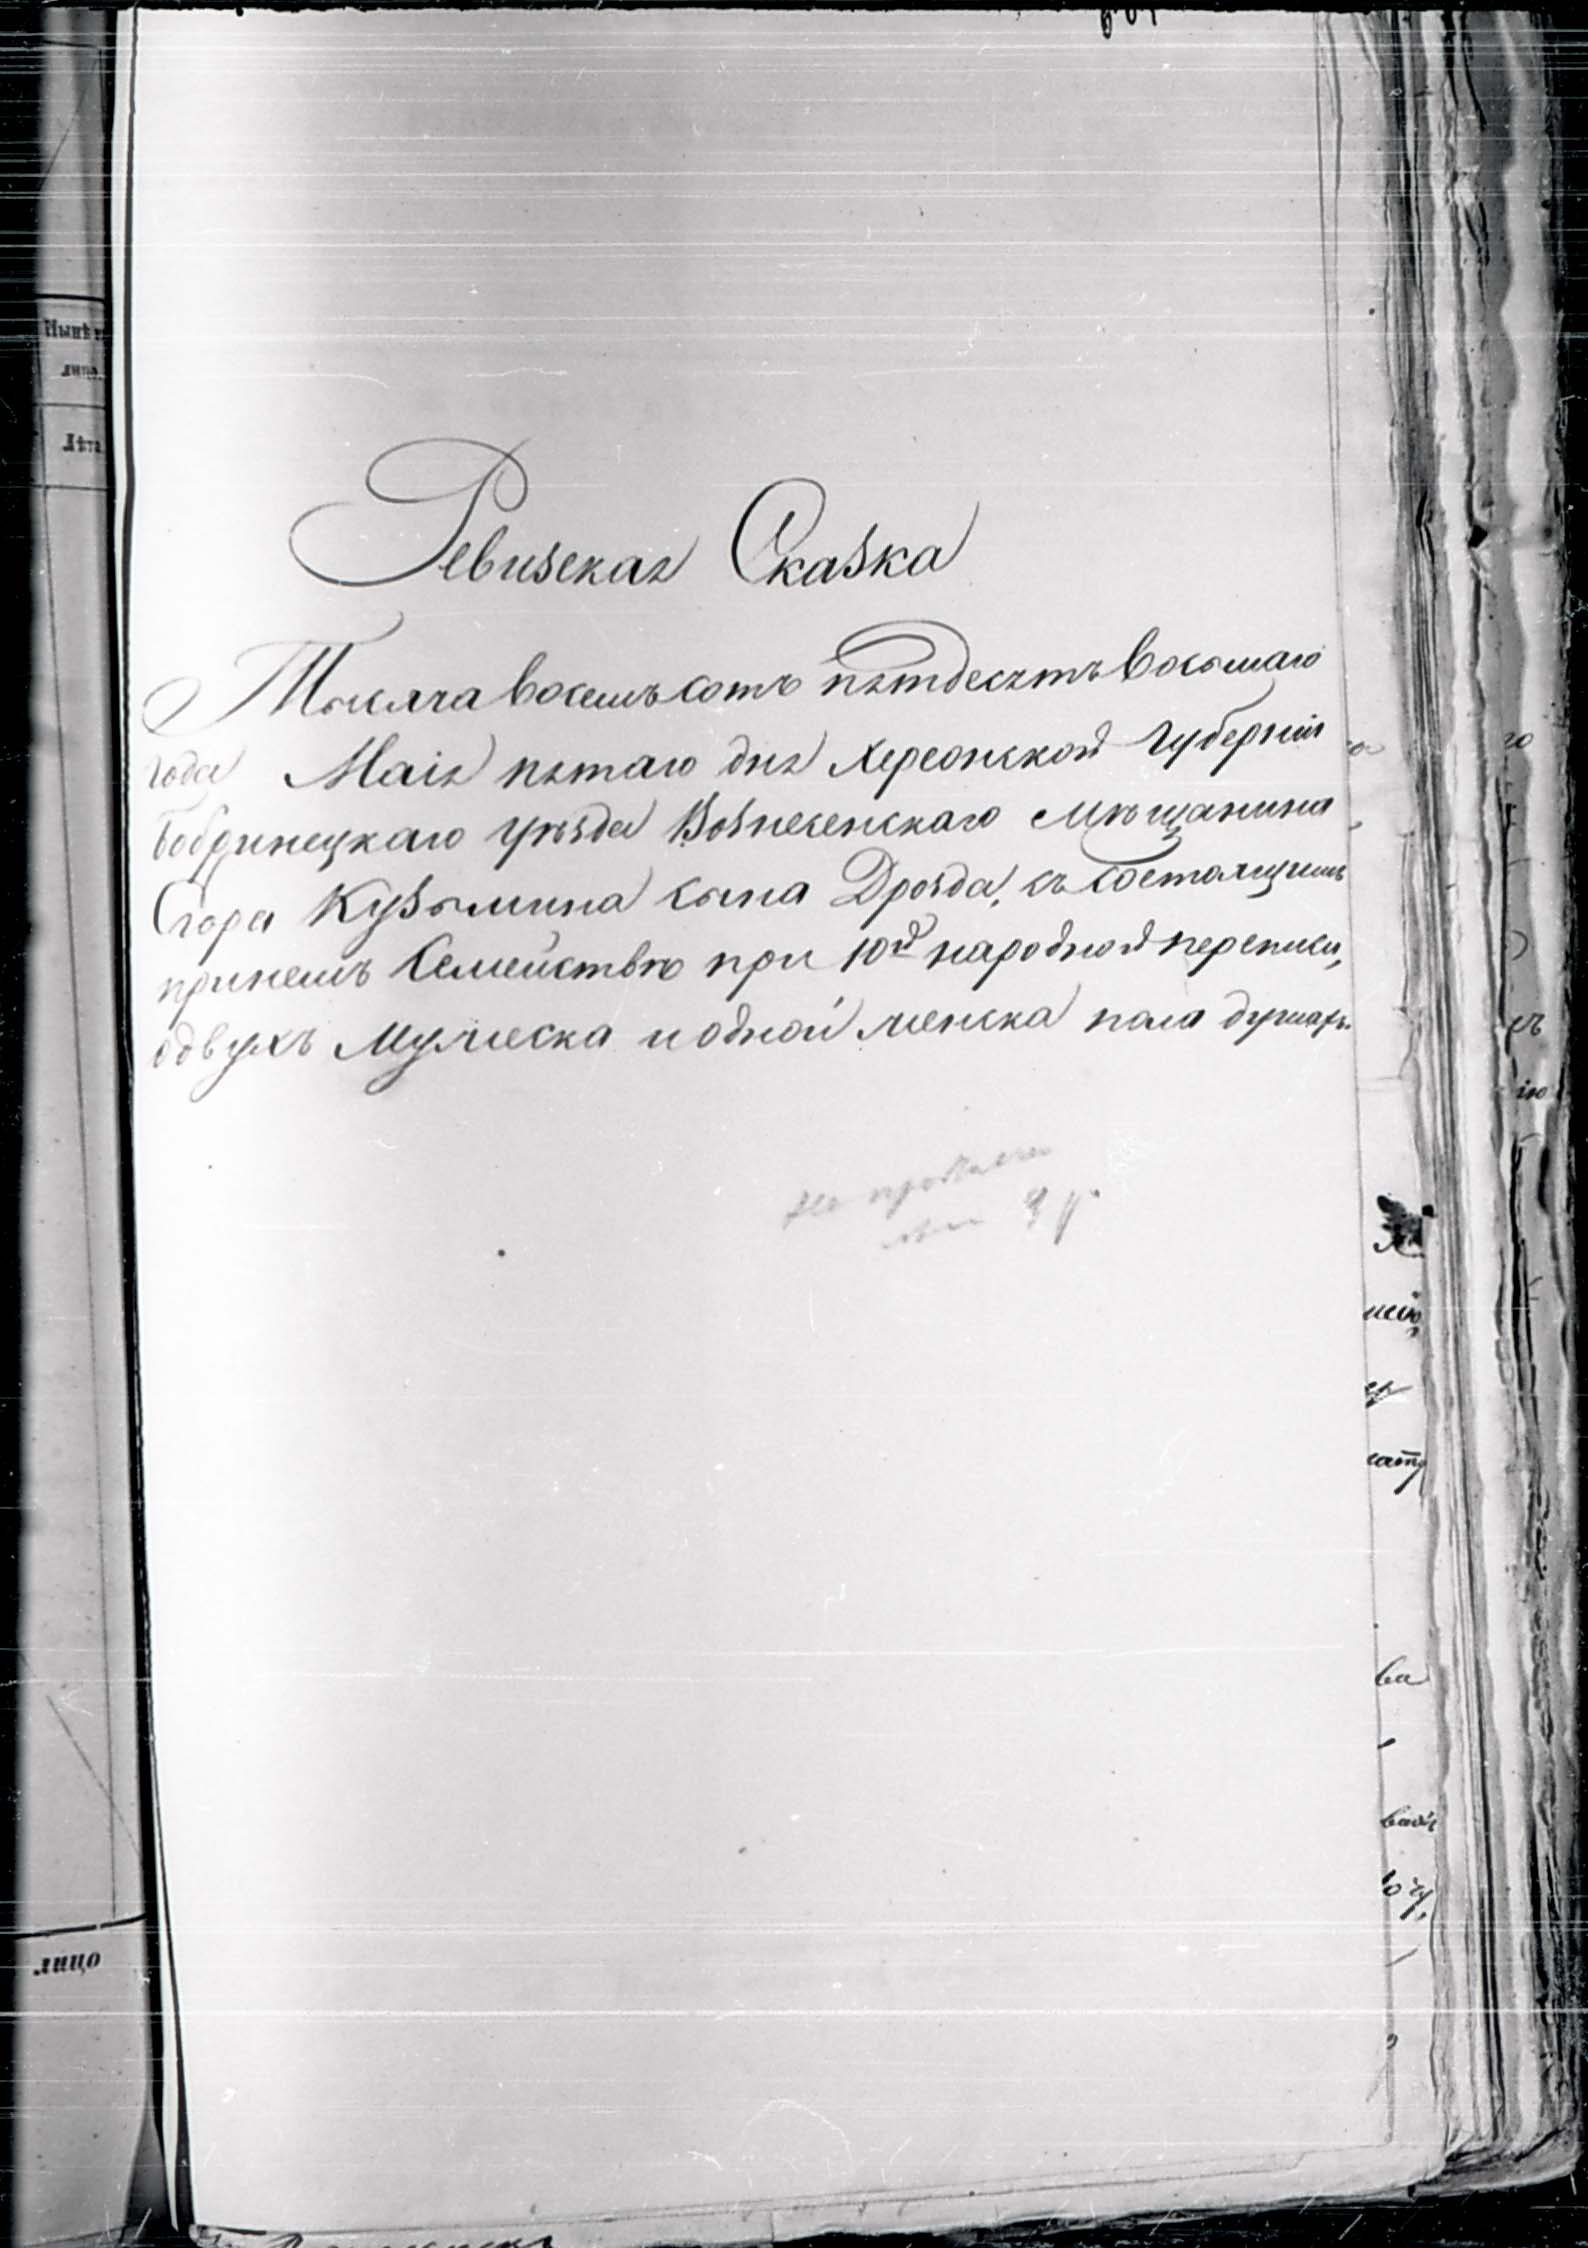 Ревизская Сказка
Тысяча восемьсотъ пятдесятъ восьмаго
года Маія пятаго дня Херсонской Губерніи
Бобринецкаго уѣзда Вознесенскаго Мѣщанина
Егора Кузьмина сына Дрозда, съ состоящимъ
принемъ Семействѣ при 10й народной переписи,
одвухъ Мужеска и одной женска пола душахъ.
Нынѣ
лицо
Лѣта
лицо